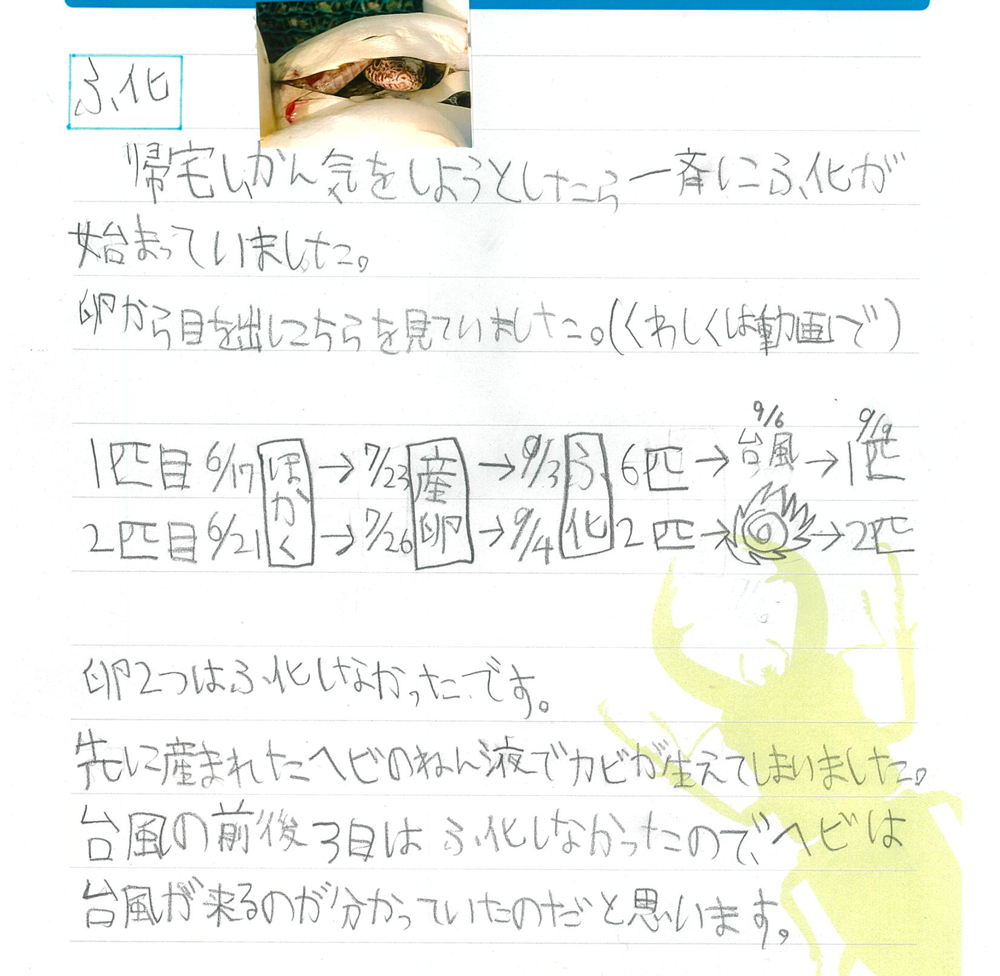 ふ化
帰宅し、かん気をしようとしたら一斉にふ化が
始まっていました。
卵から目を出しこちらを見ていました。(くわしくは動画で)
9/6 9/9
1匹目 6/17 ほかく → 7/23 産卵 → 9/3 ふ化 6匹 → 台風 → 1匹
2匹目 6/21 → 7/26 → 9/4 2匹 → → 2匹
卵2つはふ化しなかったです。
先に産まれたヘビのねん液でカビが生えてしまいました。
台風の前後3日はふ化しなかったので、ヘビは
台風が来るのが分かっていたのだと思います。